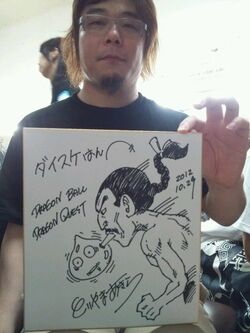 ダイスケはん
DRAGON BALL
DRAGON QUEST
2012
10.29
とりやまあきら